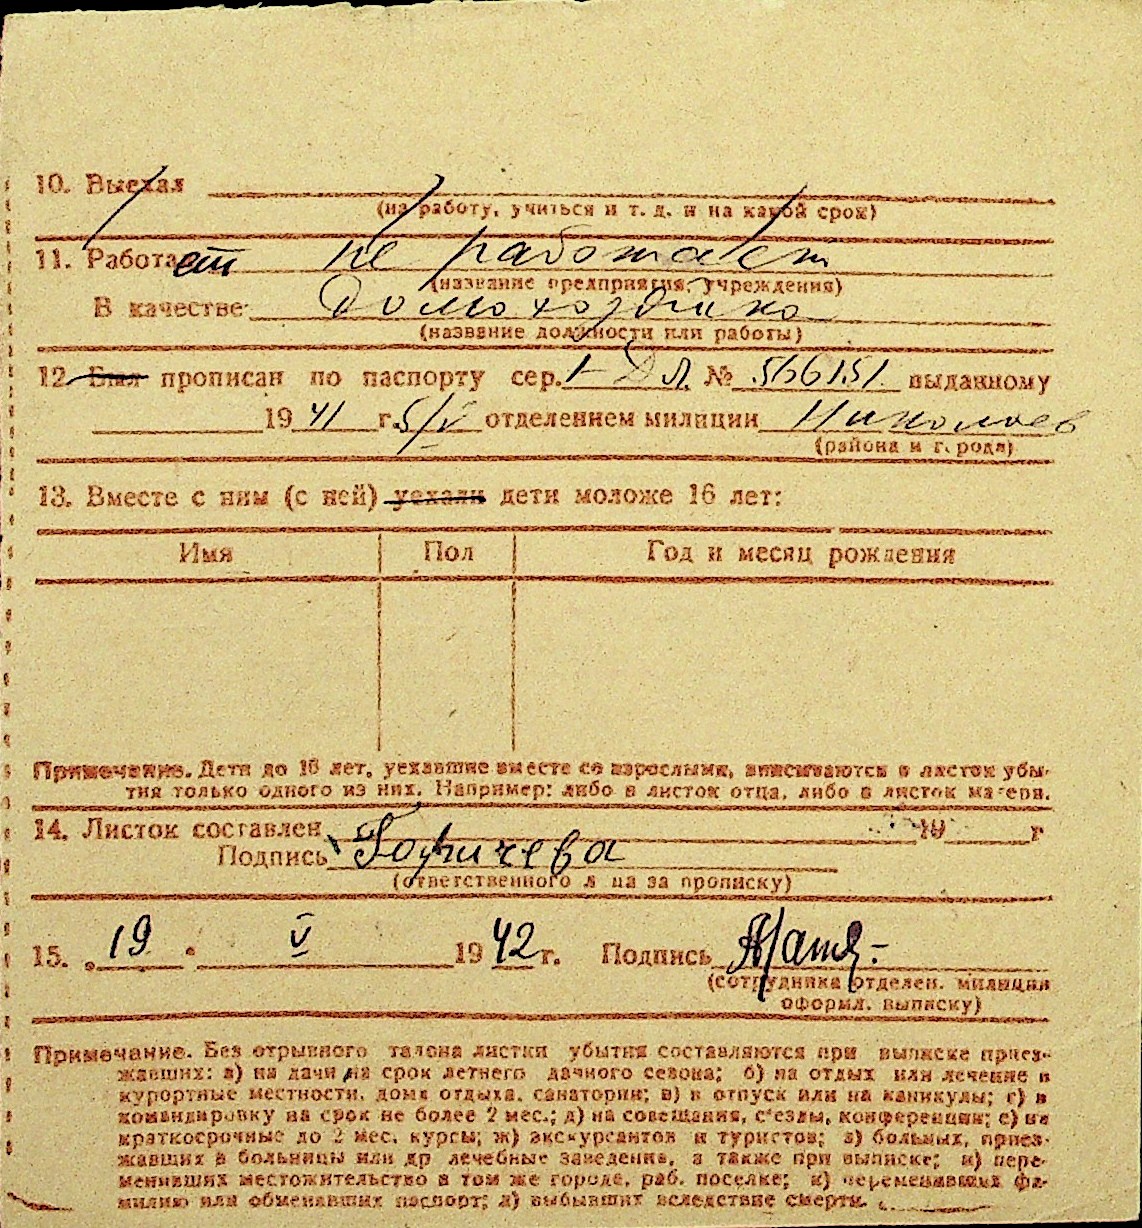 10. Выехал
(на работу, учиться и т. д. и на какой срок)
11. Работает не работает
(название предприятия, учреждения)
В качестве Домохозяйка
(название должности или работы)
12. Был прописан по паспорту сер. № 566151 выданному
1941 г. 5/V отделением милиции Николаев
(района и города)
13. Вместе с ним (с ней) уехали дети моложе 16 лет:
Имя Пол Год и месяц рождения
Примечание. Дети до 16 лет, уехавшие вместе со взрослыми, вписываются в листок убы-
тия только одного из них. Например: либо в листок отца, либо в листок матери.
14. Листок составлен 19 г
Подпись
(ответственного лица за прописку)
15. 19 V 1942 г. Подпись
(сотрудника отделен. милиции
оформл. выписку)
Примечание. Без отрывного талона листки убытия составляются при выписке приез-
жавших: а) на дачи на срок летнего дачного сезона; б) на отдых или лечение в
курортные местности, дома отдыха, санатории; в) в отпуск или на каникулы; г) в
командировку на срок не более 2 мес.; д) на совещания, с'езды, конференции; е) на
краткосрочные до 2 мес. курсы; ж) экскурсантов и туристов; з) больных, приез-
жавших в больницы или др лечебные заведения, а также при выписке; и) пере-
менивших местожительство в том же городе, раб. поселке; к) переменивших фа-
милию или обменявших паспорт; л) выбывших вследствие смерти.